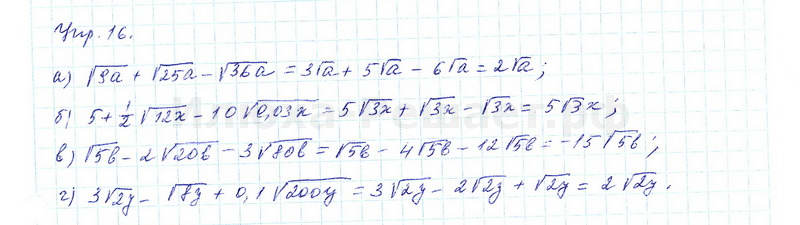 Упр. 16.
а) √9a + √25a − √36a = 3√a + 5√a − 6√a = 2√a ;
б) 5 + 1/2 √12x − 10√0,03x = 5√3x + √3x − √3x = 5√3x ;
в) √5b − 2√20b − 3√80b = √5b − 4√5b − 12√5b = −15√5b ;
г) 3√2y − √8y + 0,1√200y = 3√2y − 2√2y + √2y = 2√2y .